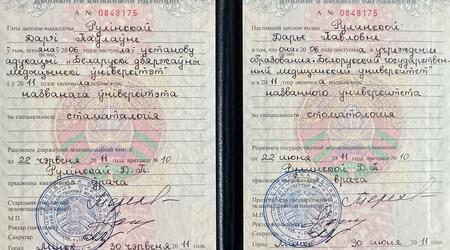 А № 0848175
Гэты дыплом выдадзены Рулінскай
Дар'і Паўлаўне
у тым, што яна ў 2006 годзе паступіла ва установу
адукацыі „Беларускі дзяржаўны
медыцынскі ўніверсітэт"
і ў 2011 годзе скончыла поўны курс
названага ўніверсітэта
па спецыяльнасці
стаматалогія
Рашэннем дзяржаўнай экзаменацыйнай камісіі
ад 22 чэрвеня 2011 года, пратакол № 10
Рулінскай Д.П.
прысвоена кваліфікацыя врача
Старшыня дзяржаўнай
экзаменацыйнай камісіі
М.П.
Рэктар
Сакратар
Горад Мінск 30 чэрвеня 2011
А № 0848175
Настоящий диплом выдан Рулинской
Дарье Павловне
в том, что она в 2006 году поступила в учреждение
образования „Белорусский государствен-
ный медицинский университет"
и в 2011 году окончила полный курс
названного университета
по специальности
стоматология
Решением государственной экзаменационной комиссии
от 22 июня 2011 года, протокол № 10
Рулинской Д.П.
присвоена квалификация врача
Председатель государственной
экзаменационной комиссии
М.П.
Ректор
Секретарь
Город Минск 30 июня 2011